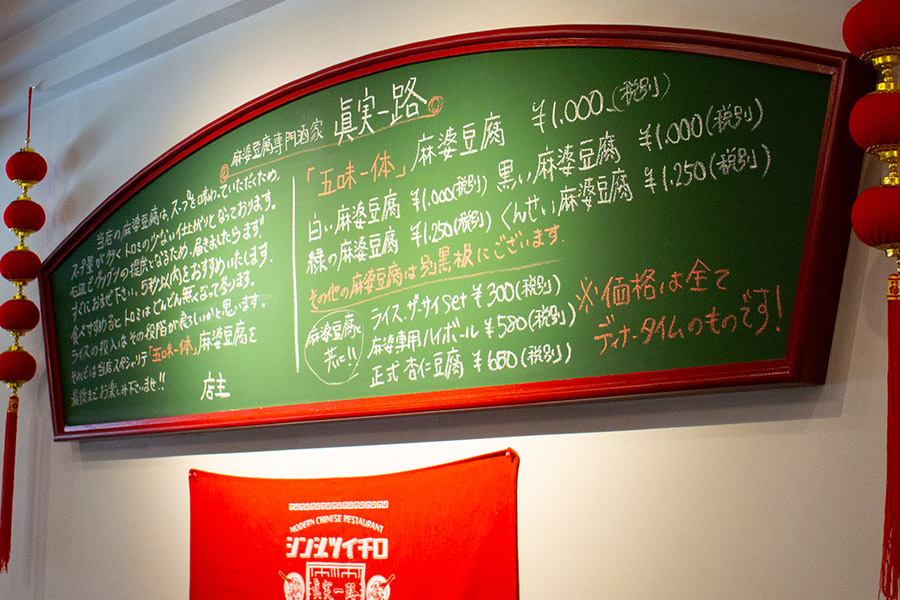 麻婆豆腐専門酒家 眞実一路
当店の麻婆豆腐はスープを味わっていただくため、
スープ量が多くトロミの少ない仕上がりとなっております。
石皿でグツグツの提供となるため、届きましたらまず
すぐにおまぜ下さい。5秒以内をおすすめいたします。
食べすすめるとトロミはどんどん無くなって参ります。
ライスの投入はその段階が良ろしいかと思います。
それでは当店スペシャリテ「五味一体」麻婆豆腐を
最後までお楽しみ下さいませ!!
店主
「五味一体」麻婆豆腐 ¥1.000(税別)
白い麻婆豆腐 ¥1.000(税別) 黒い麻婆豆腐 ¥1.000(税別)
緑の麻婆豆腐 ¥1.250(税別) くんせい麻婆豆腐 ¥1.250(税別)
その他の麻婆豆腐は別黒板にございます.
麻婆豆腐と
共に!!
ライス.ザーサイset ¥300(税別)
麻婆専用ハイボール ¥580(税別)
正式杏仁豆腐 ¥680(税別)
※価格は全て
ディナータイムのものです!
MODERN CHINESE RESTAURANT
シンジツイチロ
眞実一路